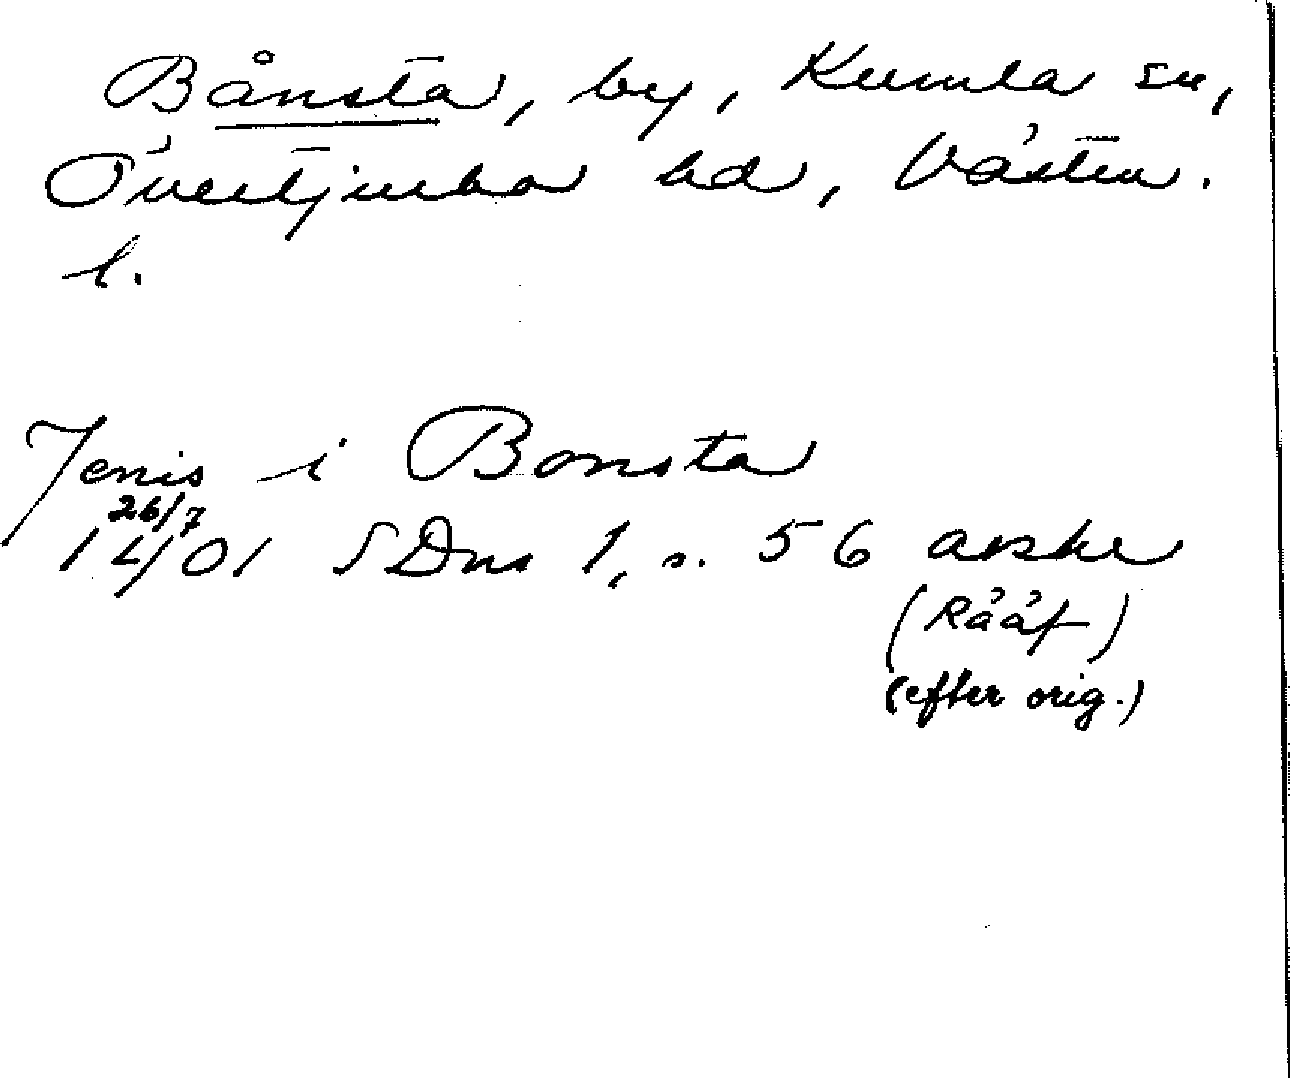 Bånsta, by, Kumla sn,
Övertjurbo hd, Västm.
l.
Jenis i Bonsta
26/7
1401 SDns 1, s. 56 avskr
(Rääf)
(efter orig.)